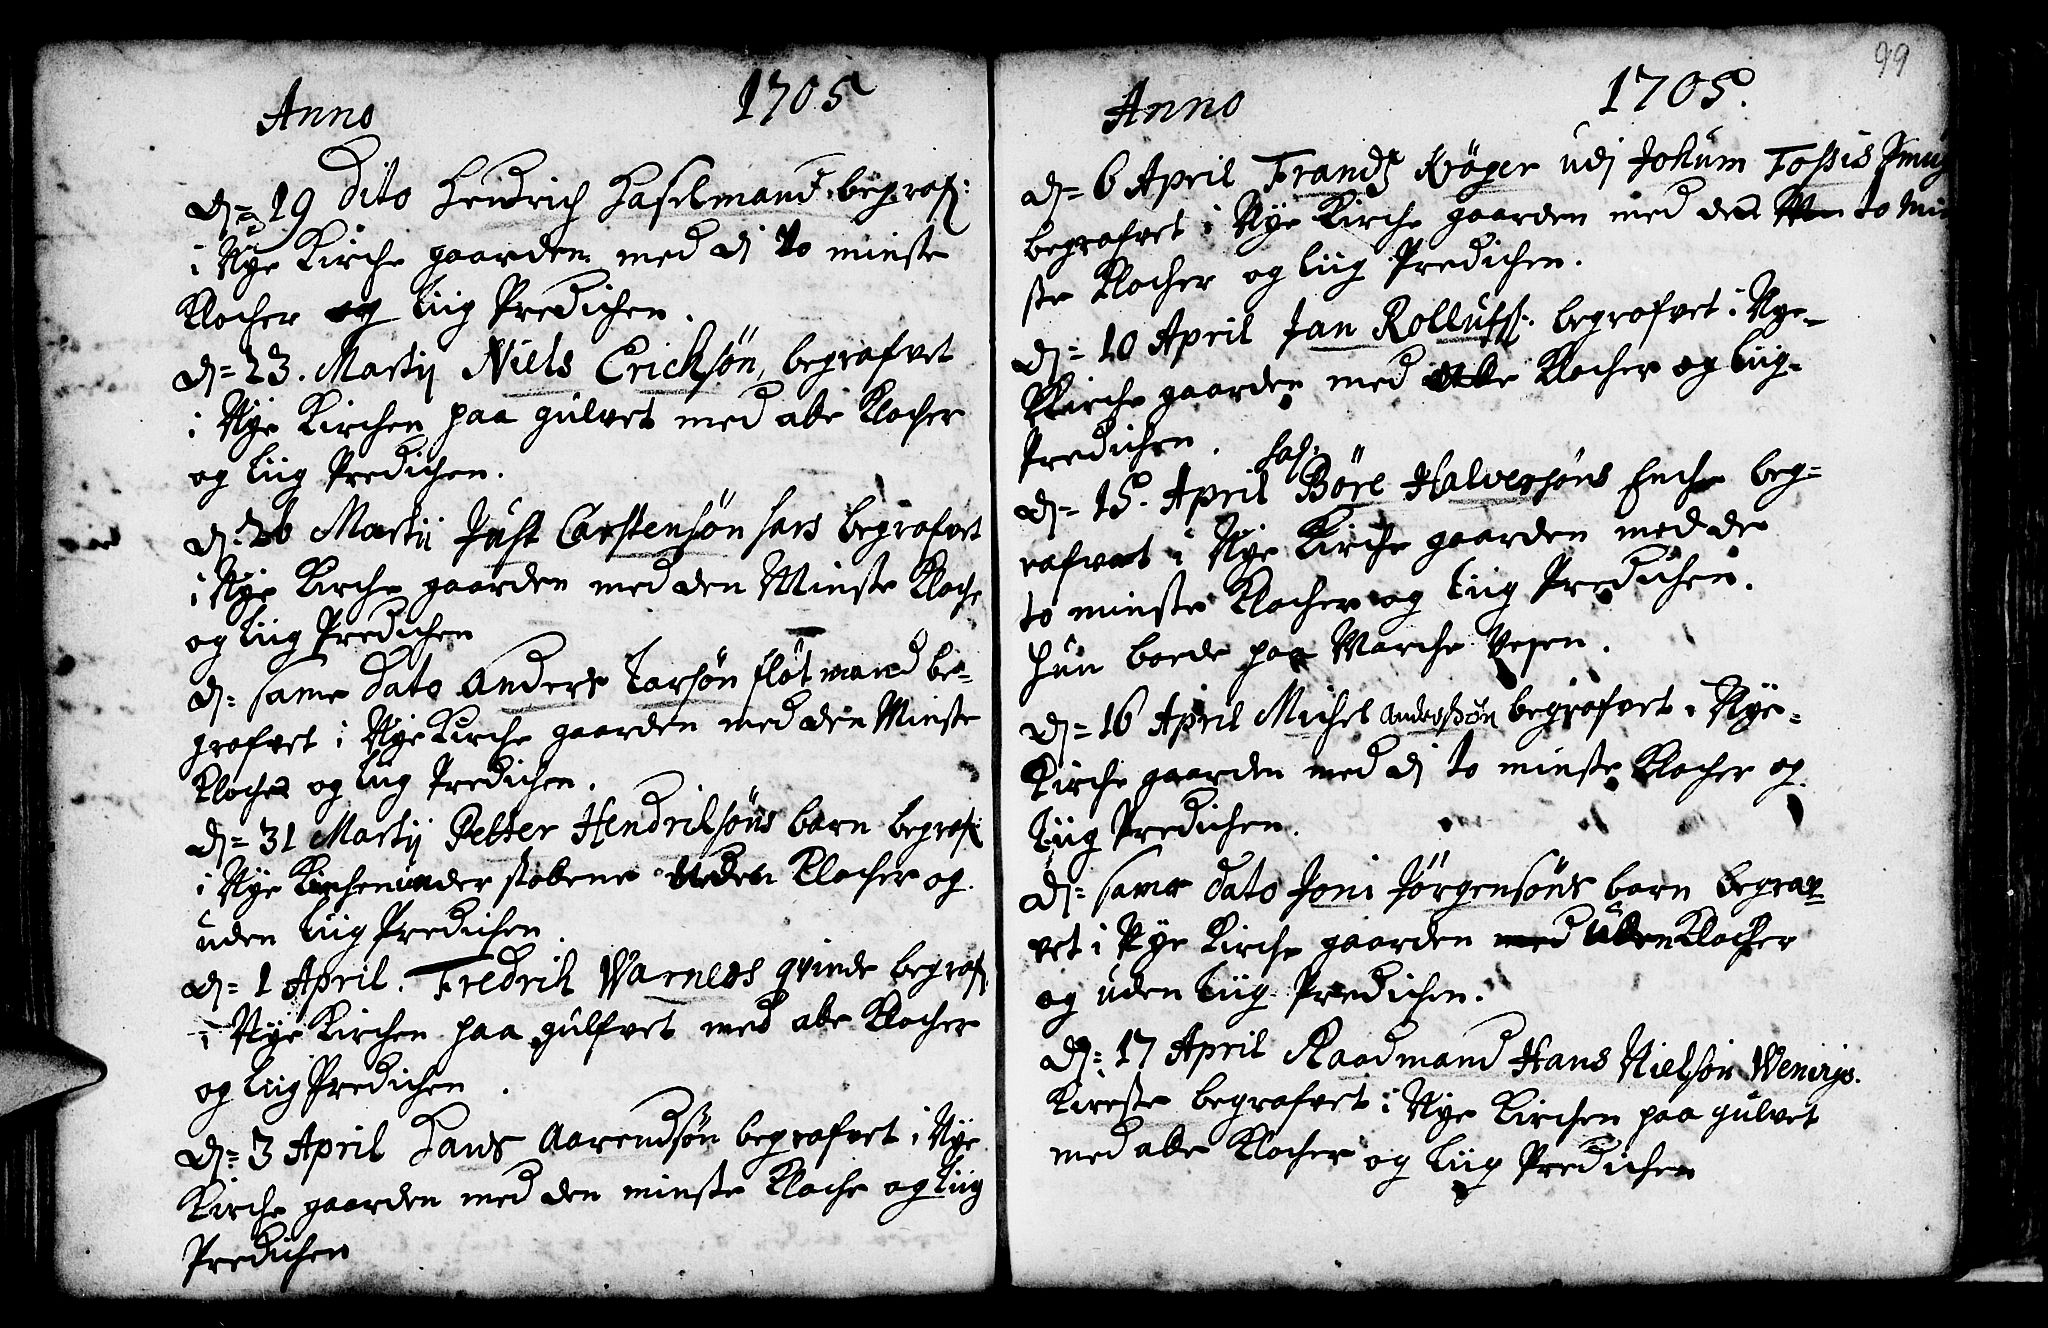 Anno 1705
D= 19 Dito Hendrich Haselmand begraf:
i Nye Kirche gaarden med di to minste
Klocher og Liig Predichen.
D= 23. Martij Niels Ericksøn, begrafvet
i Nye Kirchen paa gulvet med alle Klocher
og Liig Predichen.
D: 26 Martij Just Carstensøn begrafvet
i Nye Kirche gaarden med den Minste Kloche
og Liig Predichen
D: same Dato Anders Larsøn fløtmand be-
grafvet i Nye Kirche gaarden med den Minste
Kloche og Liig Predichen.
D= 31 Martij Petter Hendriksøns barn begraf:
i Nye Kirchen under stolene uden Klocher og
uden Liig Predichen.
D= 1 April. Fredrik Warners qvinde begraf:
i Nye Kirchen paa gulfvet med alle Klocher
og Liig Predichen.
D= 3 April Hans Aarendsøn begrafvet i Nye
Kirche gaarden med den minste Kloche og Liig
Predichen
99
Anno 1705.
D= 6 April Frandtz Krøger udj Jokum
begrafvet i Nye Kirche gaarden med de to min
ste Klocher og Liig Predichen.
D= 10 April Jan begrafvet i Nye-
Kirche gaarden med alle Klocher og Liig-
Predichen.
Sal:
D= 15. April Børe Halversøns Enche beg=
rafvet i Nye Kirche gaarden med de
to minste Klocher og Liig Predichen.
Hun boede paa Marche Vejen.
D= 16 April Michel Andersøn begrafvet i Nye-
Kirche gaarden med di to minste Klocher og
Liig Predichen.
D: same Dato Joni Jørgensøns barn begraf=
vet i Nye Kirche gaarden med uden Klocher
og uden Liig Predichen.
D: 17 April Raadmand Hans Nielsøn
Kireste begrafvet i Nye Kirchen paa gulvet
med alle Klocher og Liig Predichen